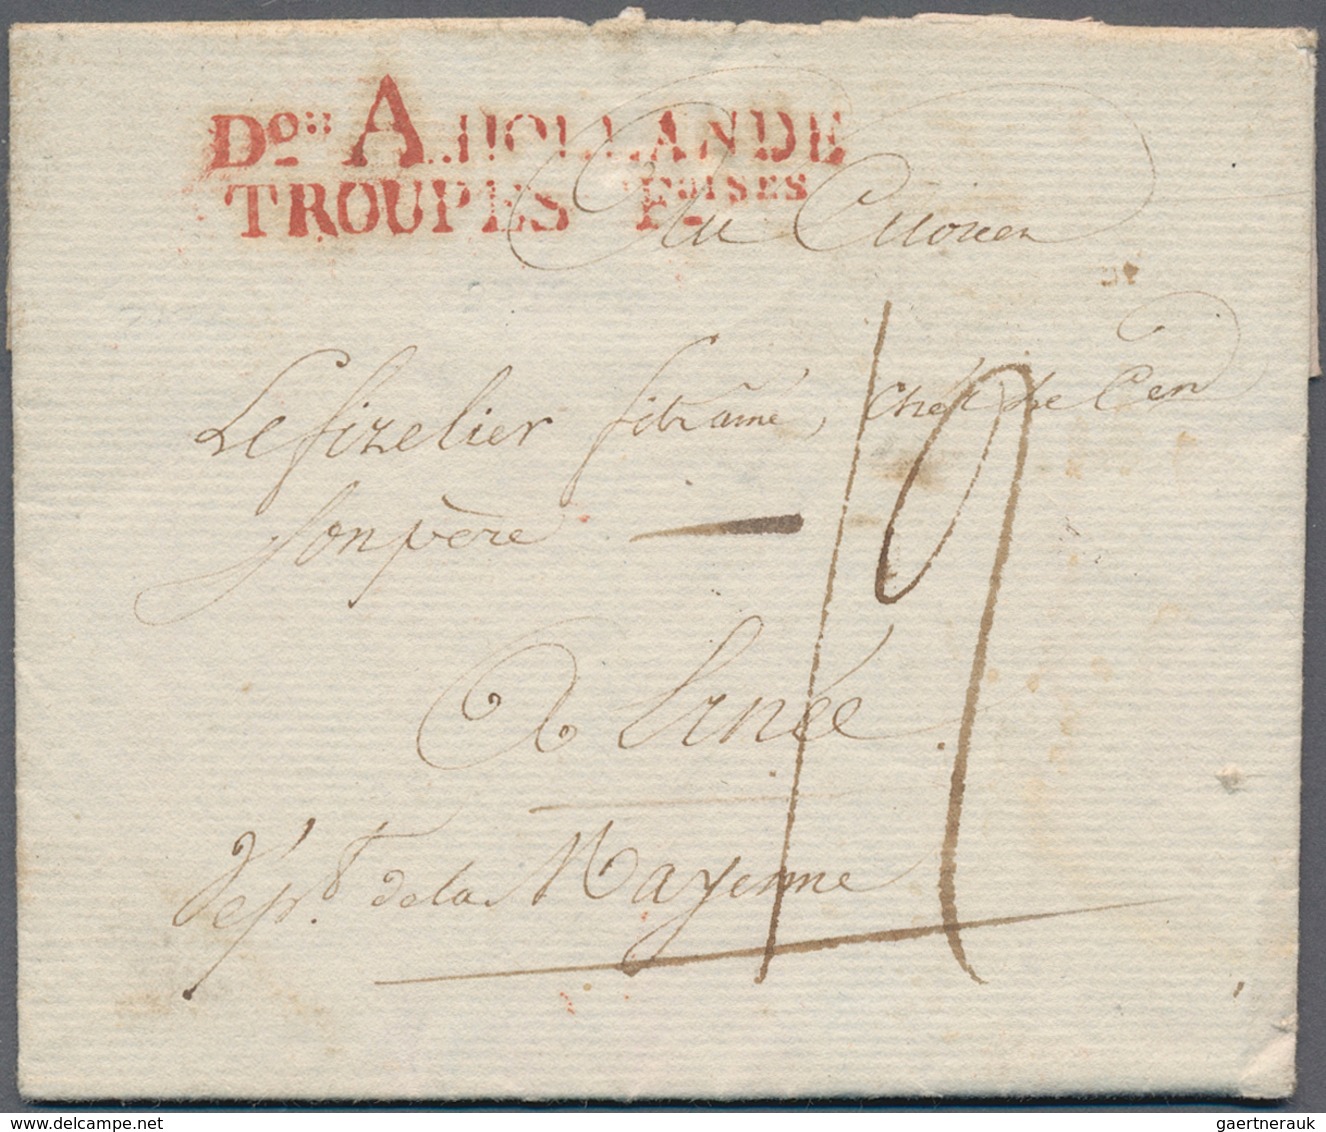 Don A HOLLANDE
TROUPES Foises
Au Citoien
Lefizelier fils ainé, chez le Cen
son père
19
A Ernée
dépt. de la Mayenne
www.delcampe.net
gaertnerauk